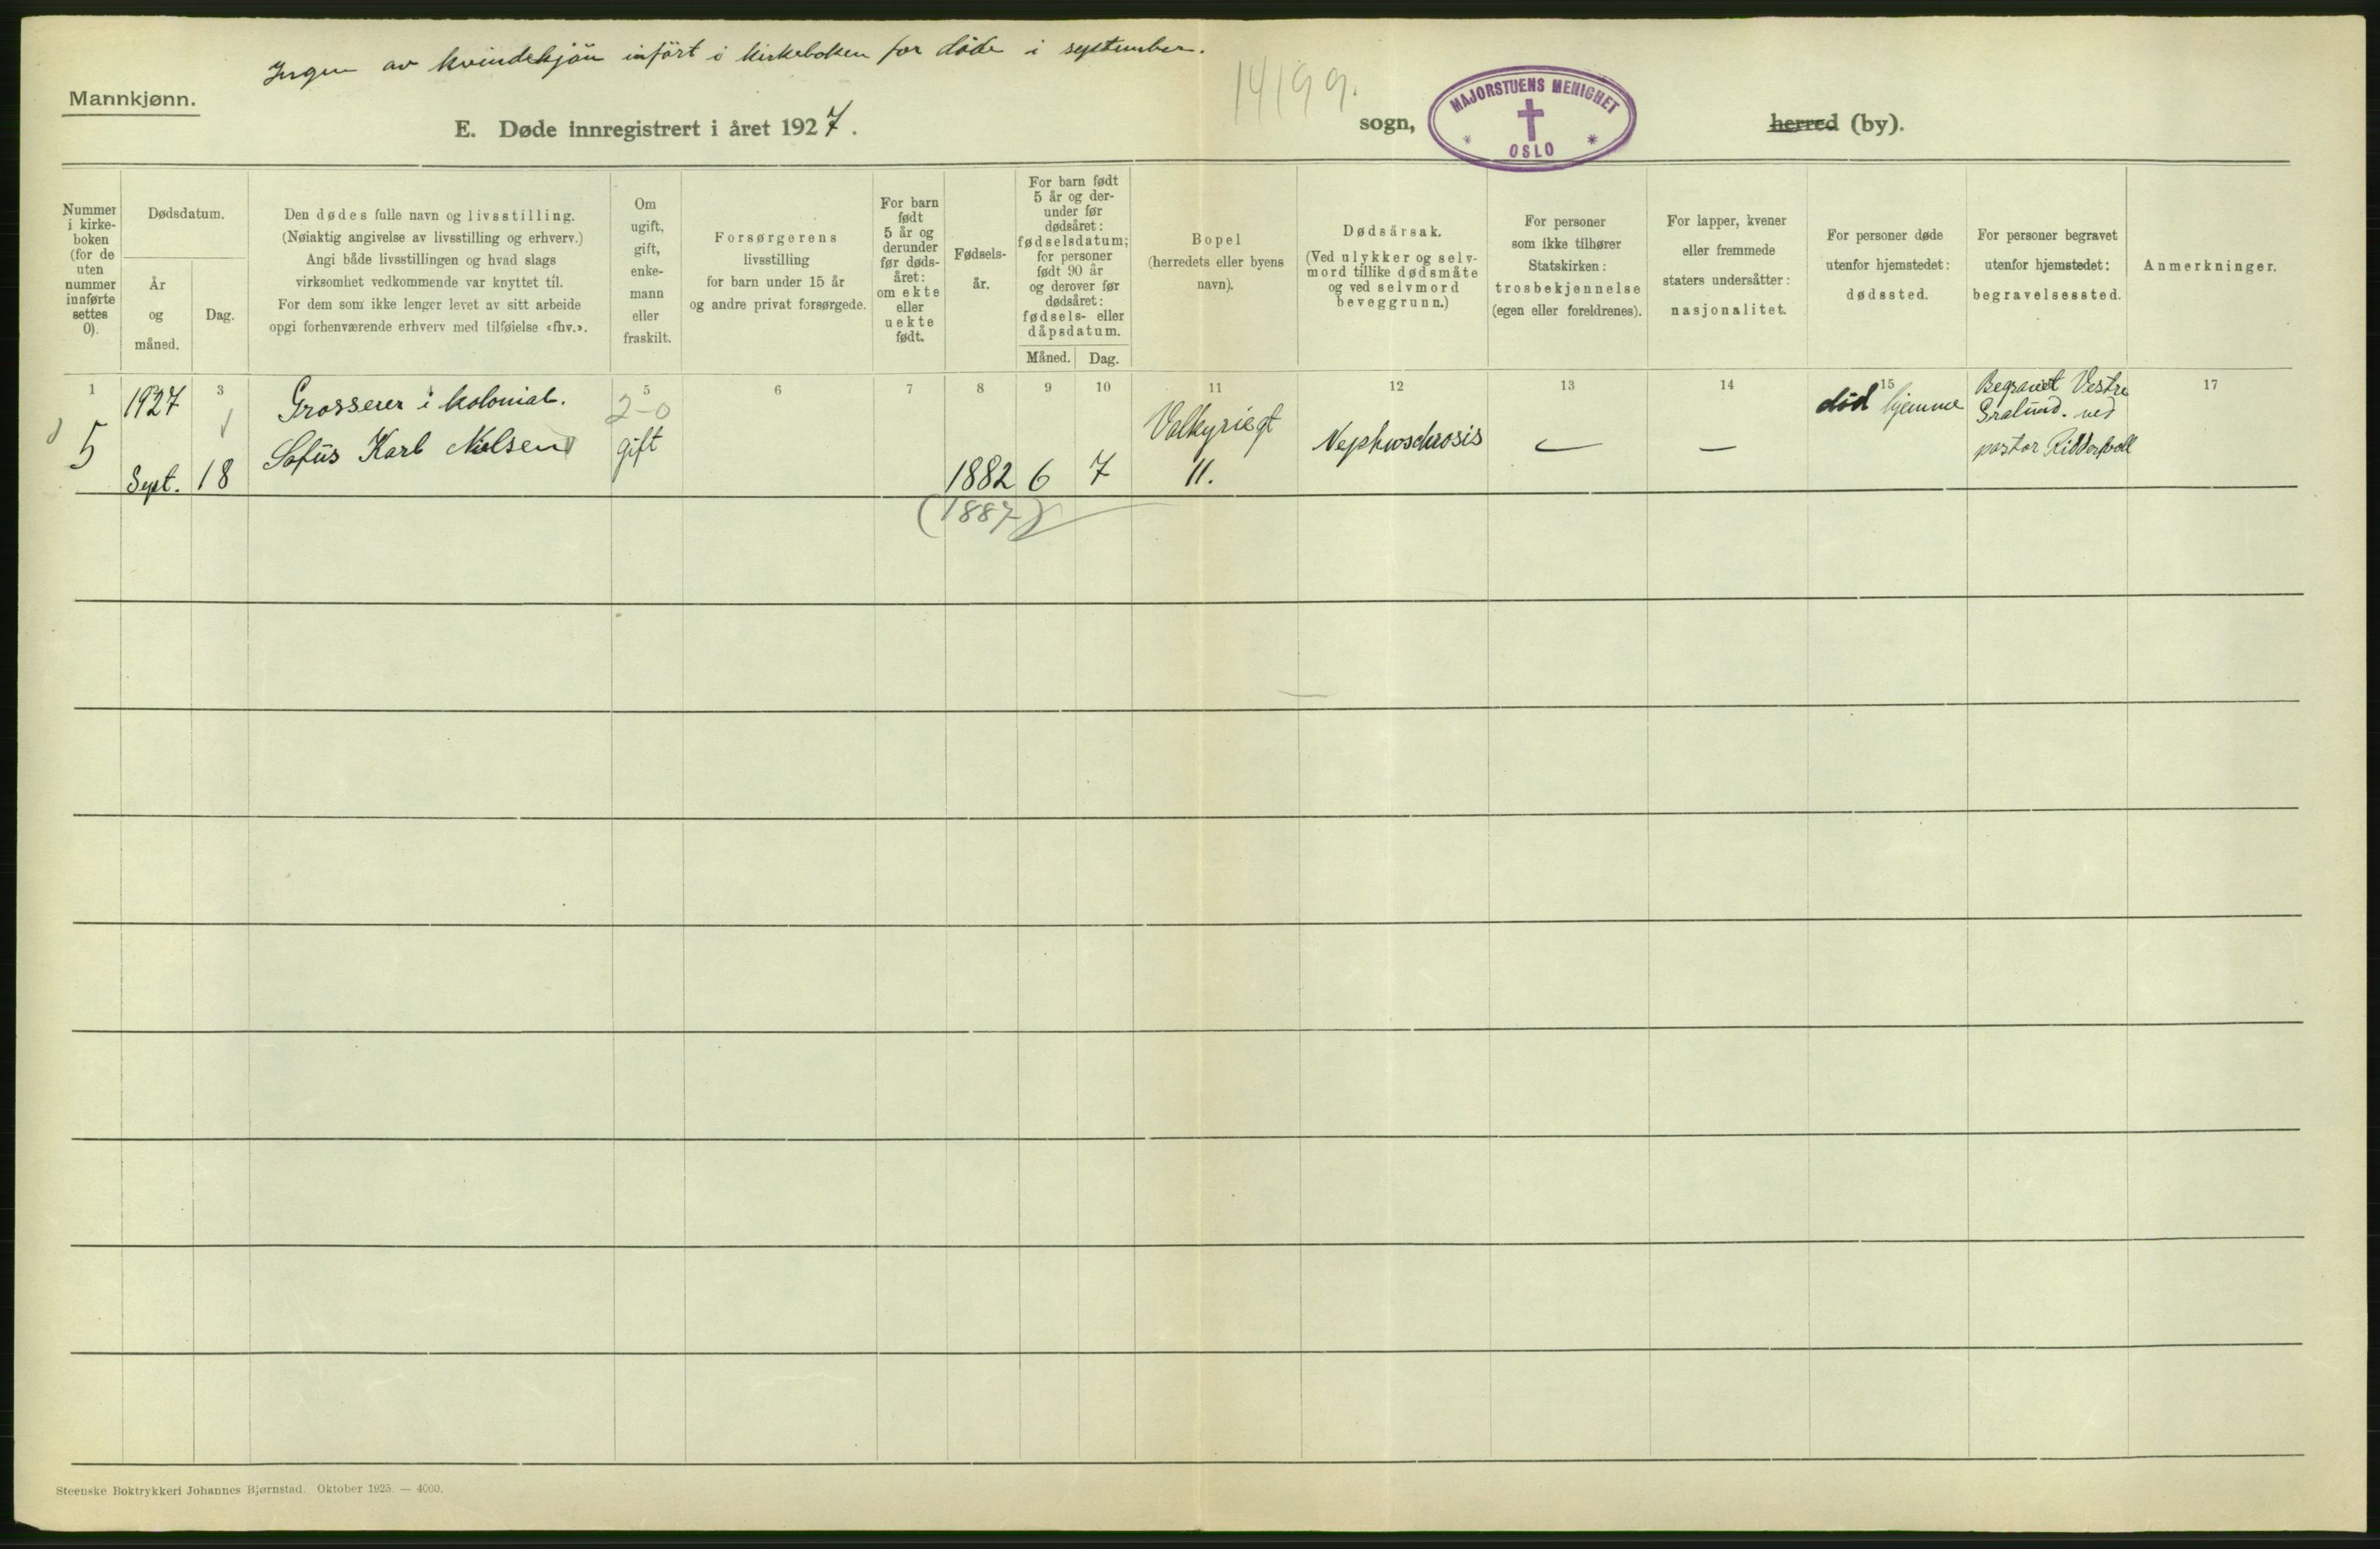 Ingen av kvindekjön infört i kirkeboken for döde i september.
14199.
Mannkjønn.
E. Døde innregistrert i året 1927.
sogn,
MAJORSTUENS MENIGHET
OSLO
herred (by).
Nummer
i kirke-
boken
(for de
uten
nummer
innførte
settes
0).
Dødsdatum.
År
og
måned.
Dag.
Den dødes fulle navn og livsstilling.
(Nøiaktig angivelse av livsstilling og erhverv.)
Angi både livsstillingen og hvad slags
virksomhet vedkommende var knyttet til.
For dem som ikke lenger levet av sitt arbeide
opgi forhenværende erhverv med tilføielse «fhv.».
Om
ugift,
gift,
enke-
mann
eller
fraskilt.
Forsørgerens
livsstilling
for barn under 15 år
og andre privat forsørgede.
For barn
født
5 år og
derunder
før døds-
året:
om ekte
eller
uekte
født.
Fødsels-
år.
For barn født
5 år og der-
under før
dødsåret:
fødselsdatum;
for personer
født 90 år
og derover før
dødsåret:
fødsels- eller
dåpsdatum.
Måned.
Dag.
Bopel
(herredets eller byens
navn).
Dødsårsak.
(Ved ulykker og selv-
mord tillike dødsmåte
og ved selvmord
beveggrunn.)
For personer
som ikke tilhører
Statskirken:
trosbekjennelse
(egen eller foreldrenes).
For lapper, kvener
eller fremmede
staters undersåtter:
nasjonalitet.
For personer døde
utenfor hjemstedet:
dødssted.
For personer begravet
utenfor hjemstedet:
begravelsessted.
Anmerkninger.
1 3 5 6 7 8 9 10 11 12 13 14 15 17
5
1927
Sept.
18
Grosserer i kolonial.
Sofus Karl Nielsen
2-0
gift
1882
(1887)
6
7
Valkyriegt
11.
Nephrosclerosis
—
—
död hjemme
Begravet Vestre
Gralund. ved
pastor Riddervoll
Steenske Boktrykkeri Johannes Bjørnstad. Oktober 1925. — 4000.